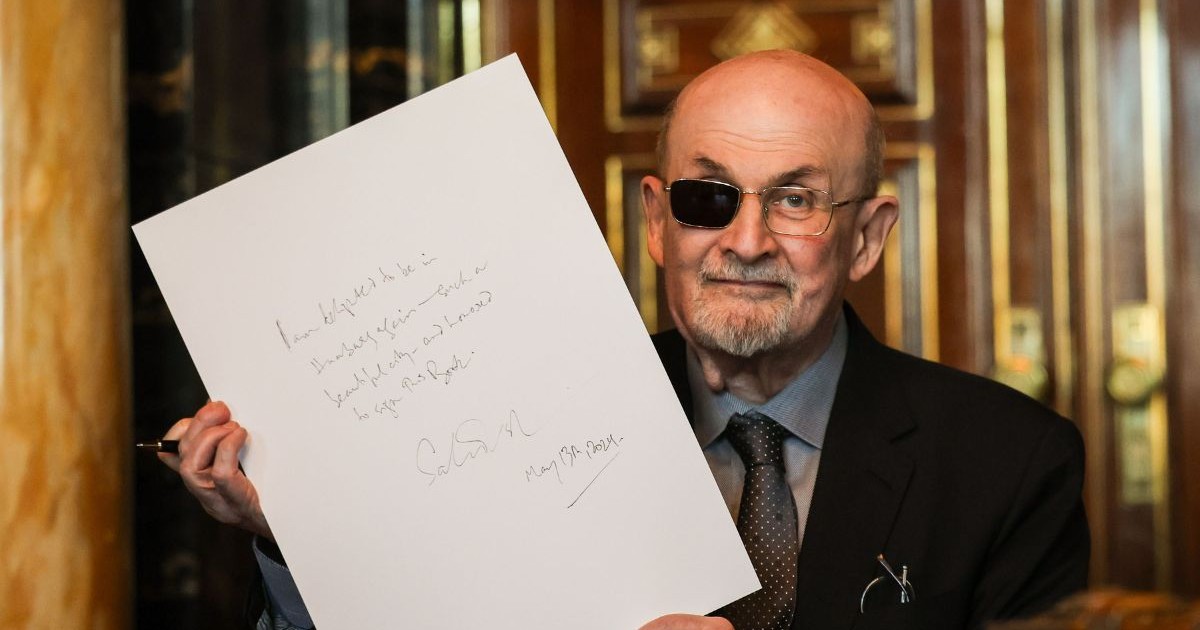 I am delighted to be in
Hamburg again – such a
beautiful city – and honored
to sign this Book.
May 13th, 2024.